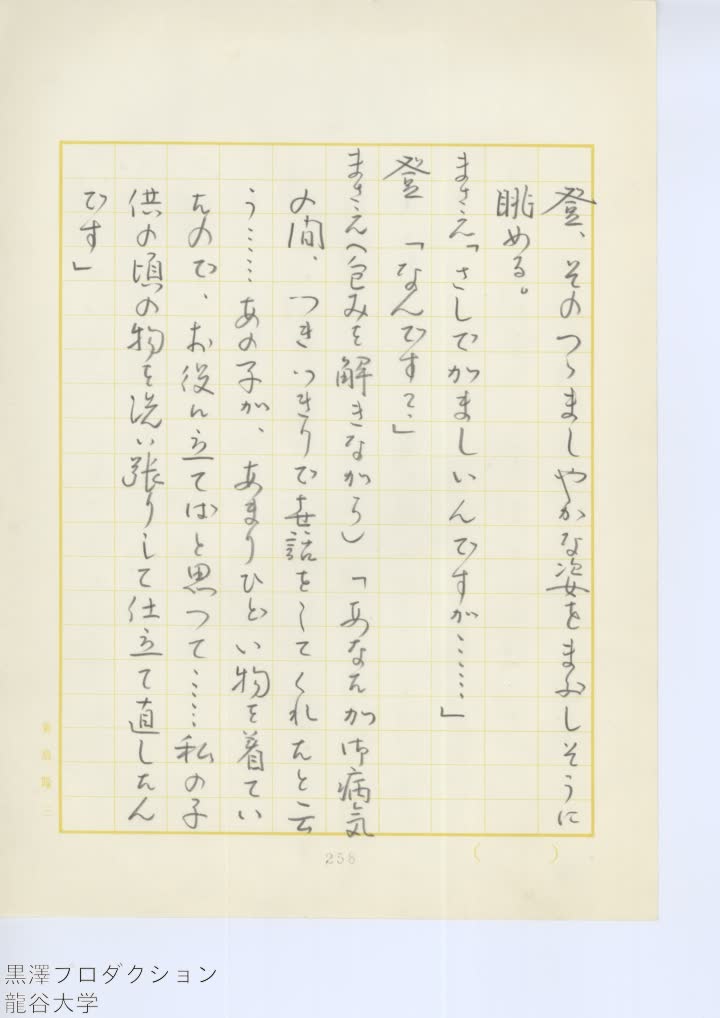 登、そのつゝましやかな姿をまぶしそうに
眺める。
まさえ「さしでがましいんですが……」
登　「なんです？」
まさえ（包みを解きながら）「あなたが御病気
の間、つきっきりで世話をしてくれたと云
う……あの子が、あまりひどい物を着てい
たので、お役に立てばと思つて……私の子
供の頃の物を洗い張りして仕立て直したん
です」
258
黒澤プロダクション
龍谷大学